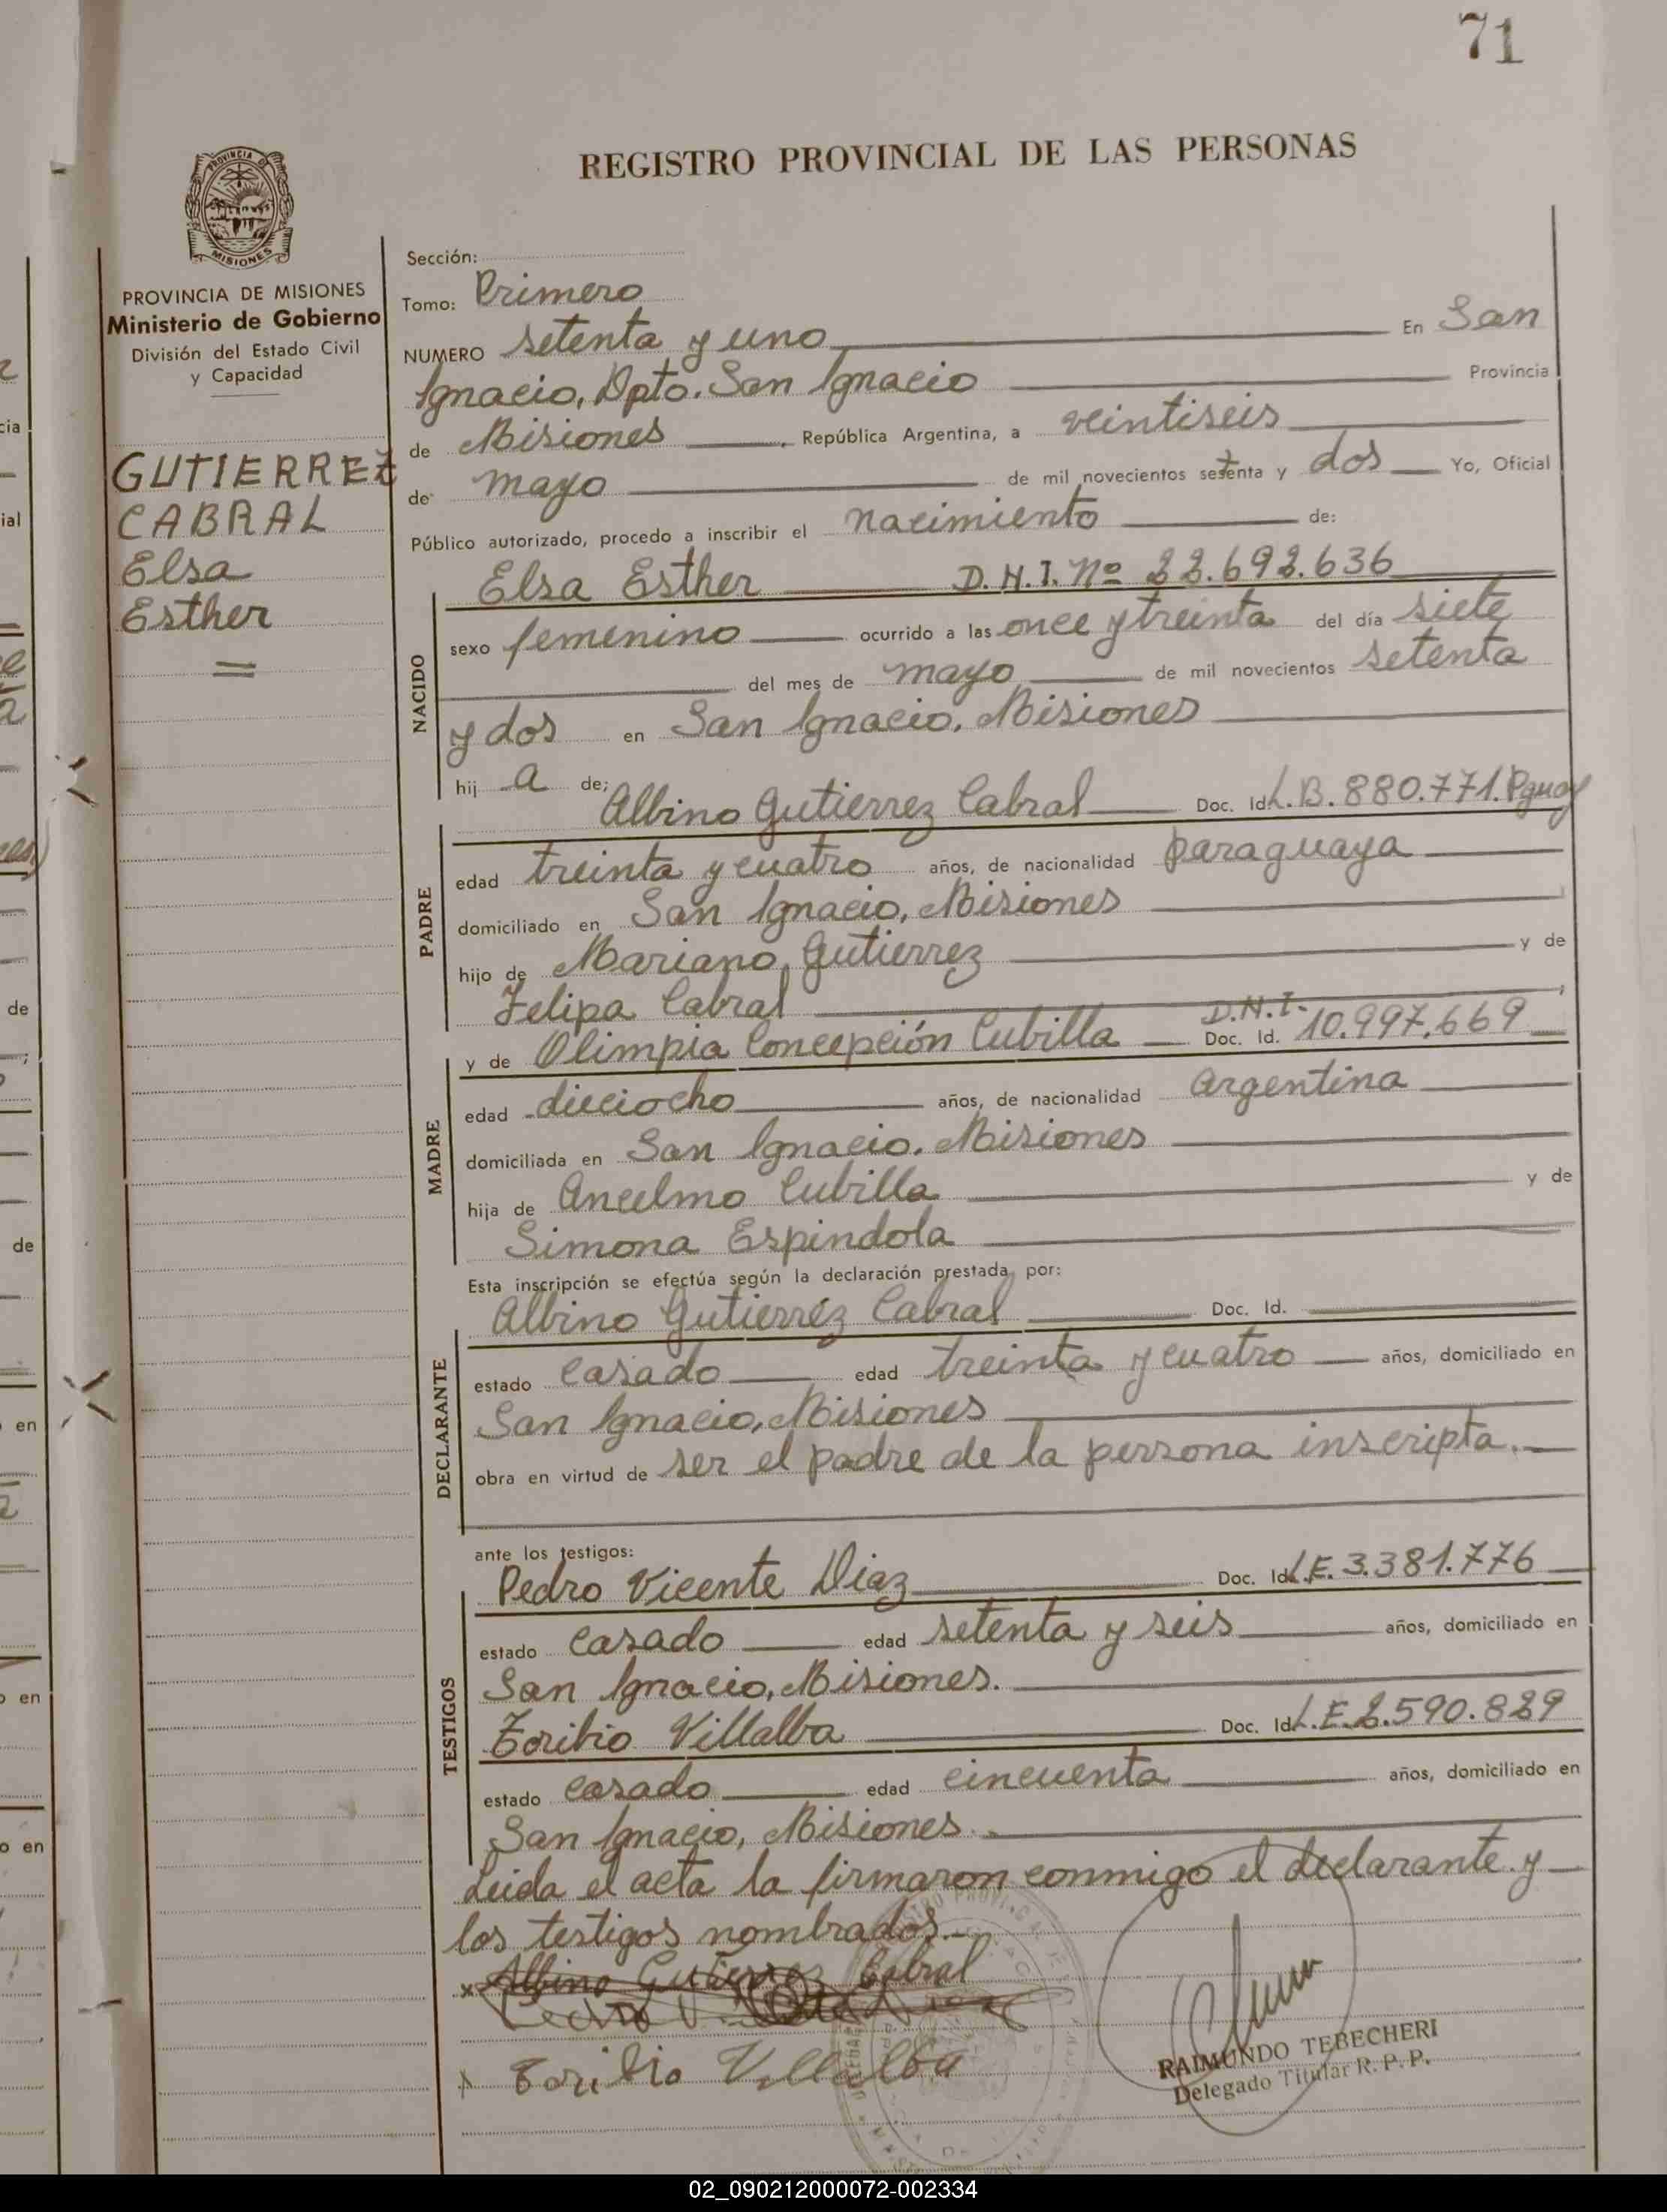 71
REGISTRO PROVINCIAL DE LAS PERSONAS
PROVINCIA DE
MISIONES
PROVINCIA DE MISIONES
Ministerio de Gobierno
División del Estado Civil
y Capacidad
GUTIERREZ
CABRAL
Elsa
Esther
Sección:
Tomo: Primero
NUMERO setenta y uno En San
Ignacio, Dpto. San Ignacio Provincia
de Misiones, República Argentina, a veintiseis
de mayo de mil novecientos setenta y dos Yo, Oficial
Público autorizado, procedo a inscribir el nacimiento de:
Elsa Esther D.N.I. Nº 22.692.636
NACIDO
sexo femenino ocurrido a las once y treinta del día siete
del mes de mayo de mil novecientos setenta
y dos en San Ignacio, Misiones
hij a de;
Albino Gutierrez Cabral Doc. Id. L.B. 880.771. Pguay
PADRE
edad treinta y cuatro años, de nacionalidad paraguaya
domiciliado en San Ignacio, Misiones
hijo de Mariano Gutierrez y de
Felipa Cabral
y de Olimpia Concepción Cubilla D.N.I. Doc. Id. 10.997.669
MADRE
edad dieciocho años, de nacionalidad argentina
domiciliada en San Ignacio, Misiones
hija de Ancelmo Cubilla y de
Simona Espindola
Esta inscripción se efectúa según la declaración prestada por:
Albino Gutierréz Cabral Doc. Id.
DECLARANTE
estado casado edad treinta y cuatro años, domiciliado en
San Ignacio, Misiones
obra en virtud de ser el padre de la persona inscripta.
ante los testigos:
Pedro Vicente Diaz Doc. Id. L.E. 3.381.776
TESTIGOS
estado casado edad setenta y seis años, domiciliado en
San Ignacio, Misiones.
Toribio Villalba Doc. Id. L.E. 2.590.829
estado casado edad cincuenta años, domiciliado en
San Ignacio, Misiones.
Leida el acta la firmaron conmigo el declarante y
los testigos nombrados.
x Albino Gutierrez Cabral
Pedro V.
Toribio Villalba
RAIMUNDO TEBECHERI
Delegado Titular R. P. P.
02_090212000072-002334